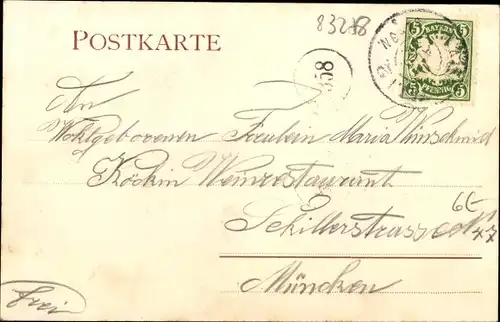 83288
POSTKARTE
5 BAYERN 5
5 PFENNIG 5
358
An
Wohlgeborenen Fräulein Maria Wunschmidt
Köchin Weinrestaurant
Schillerstrasse
6E
47
München
frei